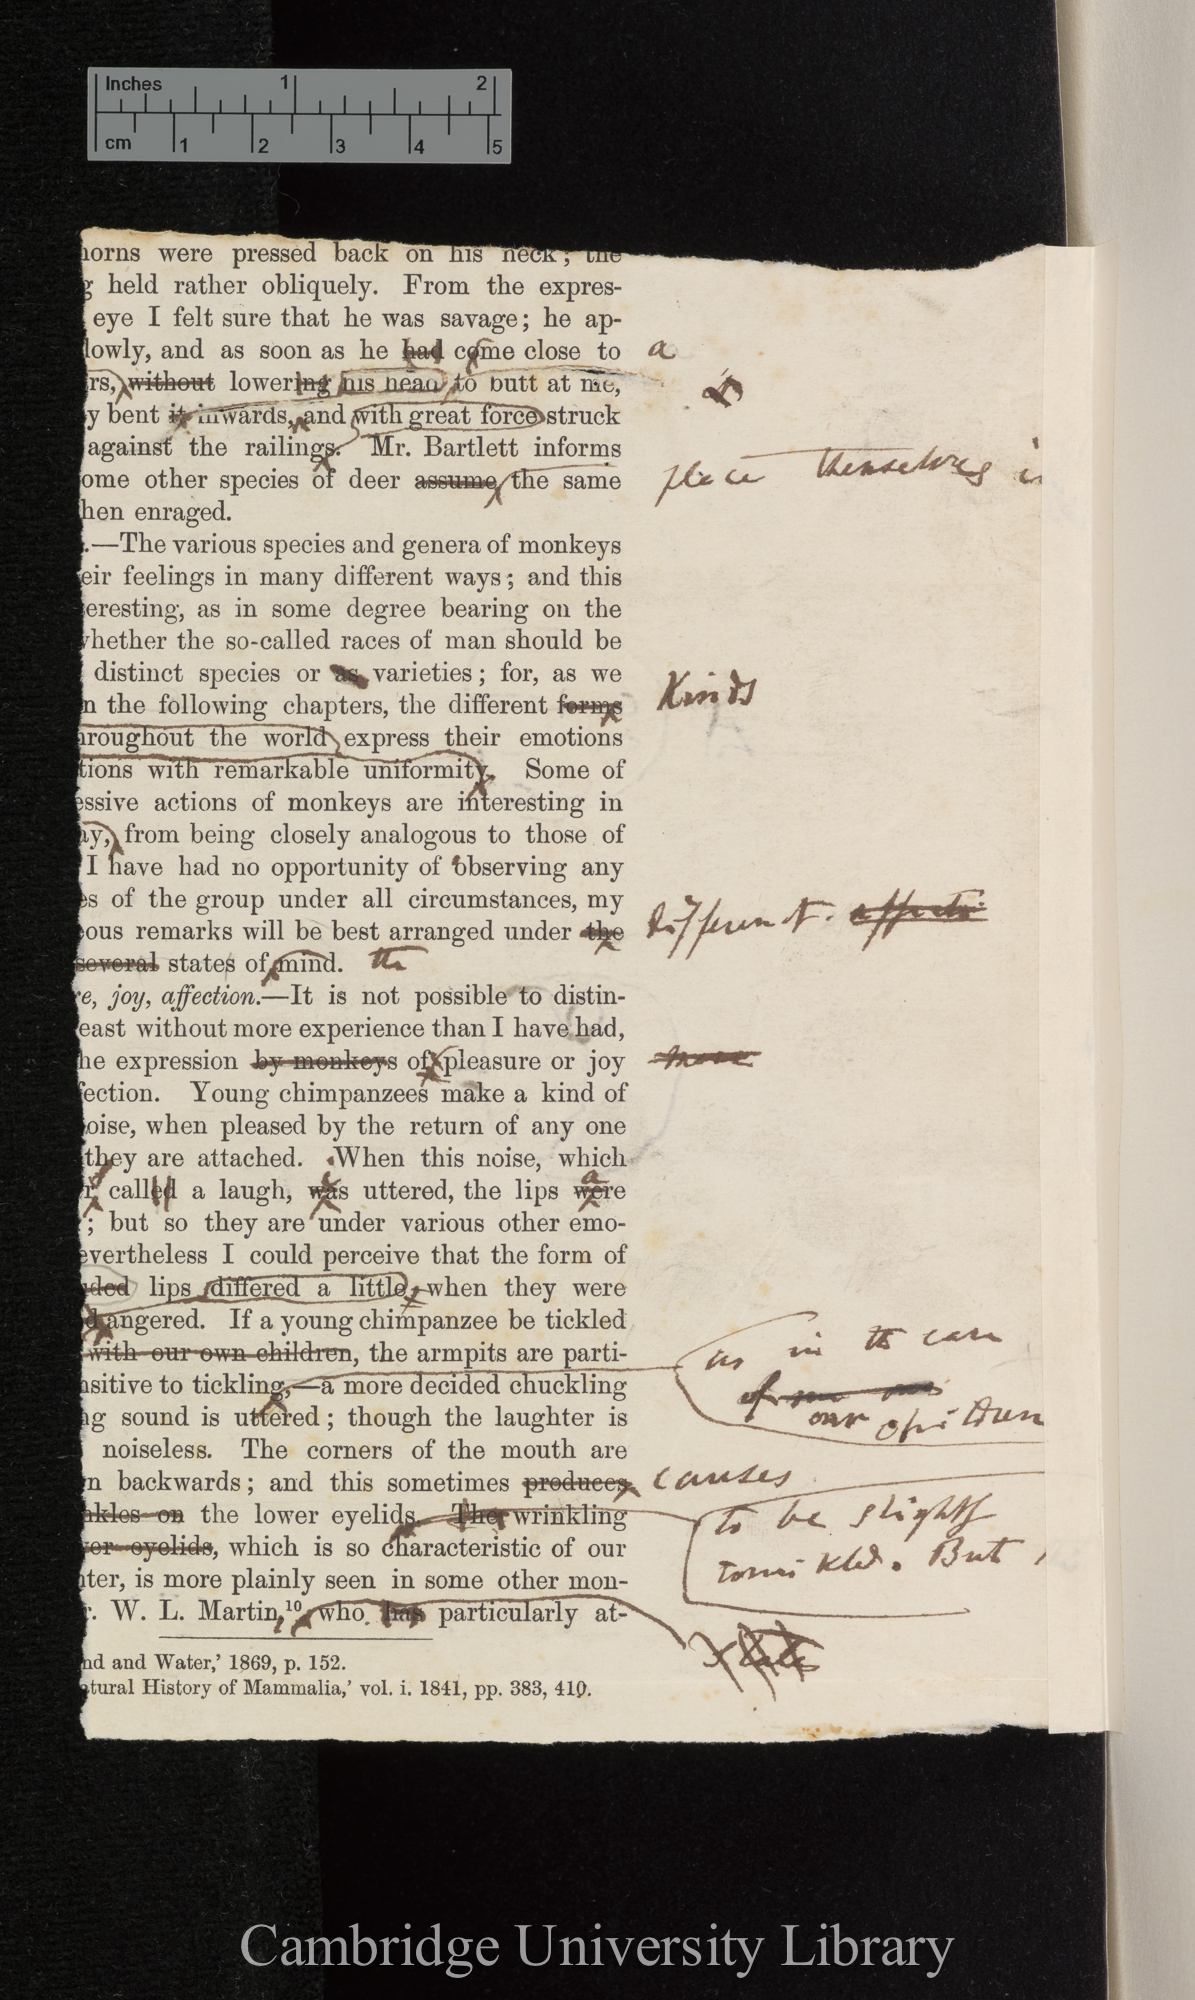 Inches 1 2
cm 1 2 3 4 5
horns were pressed back on his neck; the
g held rather obliquely. From the expres-
eye I felt sure that he was savage; he ap-
lowly, and as soon as he had come close to a
rs, without lowering his head to butt at me,
y bent it inwards, and with great force struck
against the railings. Mr. Bartlett informs
place themselves in
ome other species of deer assume the same
hen enraged.
.—The various species and genera of monkeys
eir feelings in many different ways; and this
teresting, as in some degree bearing on the
whether the so-called races of man should be
distinct species or as varieties; for, as we
n the following chapters, the different forms Kinds
hroughout the world express their emotions
tions with remarkable uniformity. Some of
essive actions of monkeys are interesting in
ay, from being closely analogous to those of
I have had no opportunity of observing any
es of the group under all circumstances, my
ous remarks will be best arranged under the different. effects
several states of mind. the
re, joy, affection.—It is not possible to distin-
east without more experience than I have had,
he expression by monkeys of pleasure or joy more
fection. Young chimpanzees make a kind of
oise, when pleased by the return of any one
they are attached. When this noise, which
r called a laugh, was uttered, the lips were
; but so they are under various other emo-
evertheless I could perceive that the form of
uded lips differed a little, when they were
d angered. If a young chimpanzee be tickled
with our own children, the armpits are parti-
as in the case
nsitive to tickling,—a more decided chuckling
of our
ng sound is uttered; though the laughter is
our children
noiseless. The corners of the mouth are
n backwards; and this sometimes produces causes
nkles on the lower eyelids. The wrinkling to be slightly
er eyelids, which is so characteristic of our
wrinkled. But
hter, is more plainly seen in some other mon-
r. W. L. Martin,¹⁰ who has particularly at-
nd and Water,' 1869, p. 152.
atural History of Mammalia,' vol. i. 1841, pp. 383, 410.
Cambridge University Library